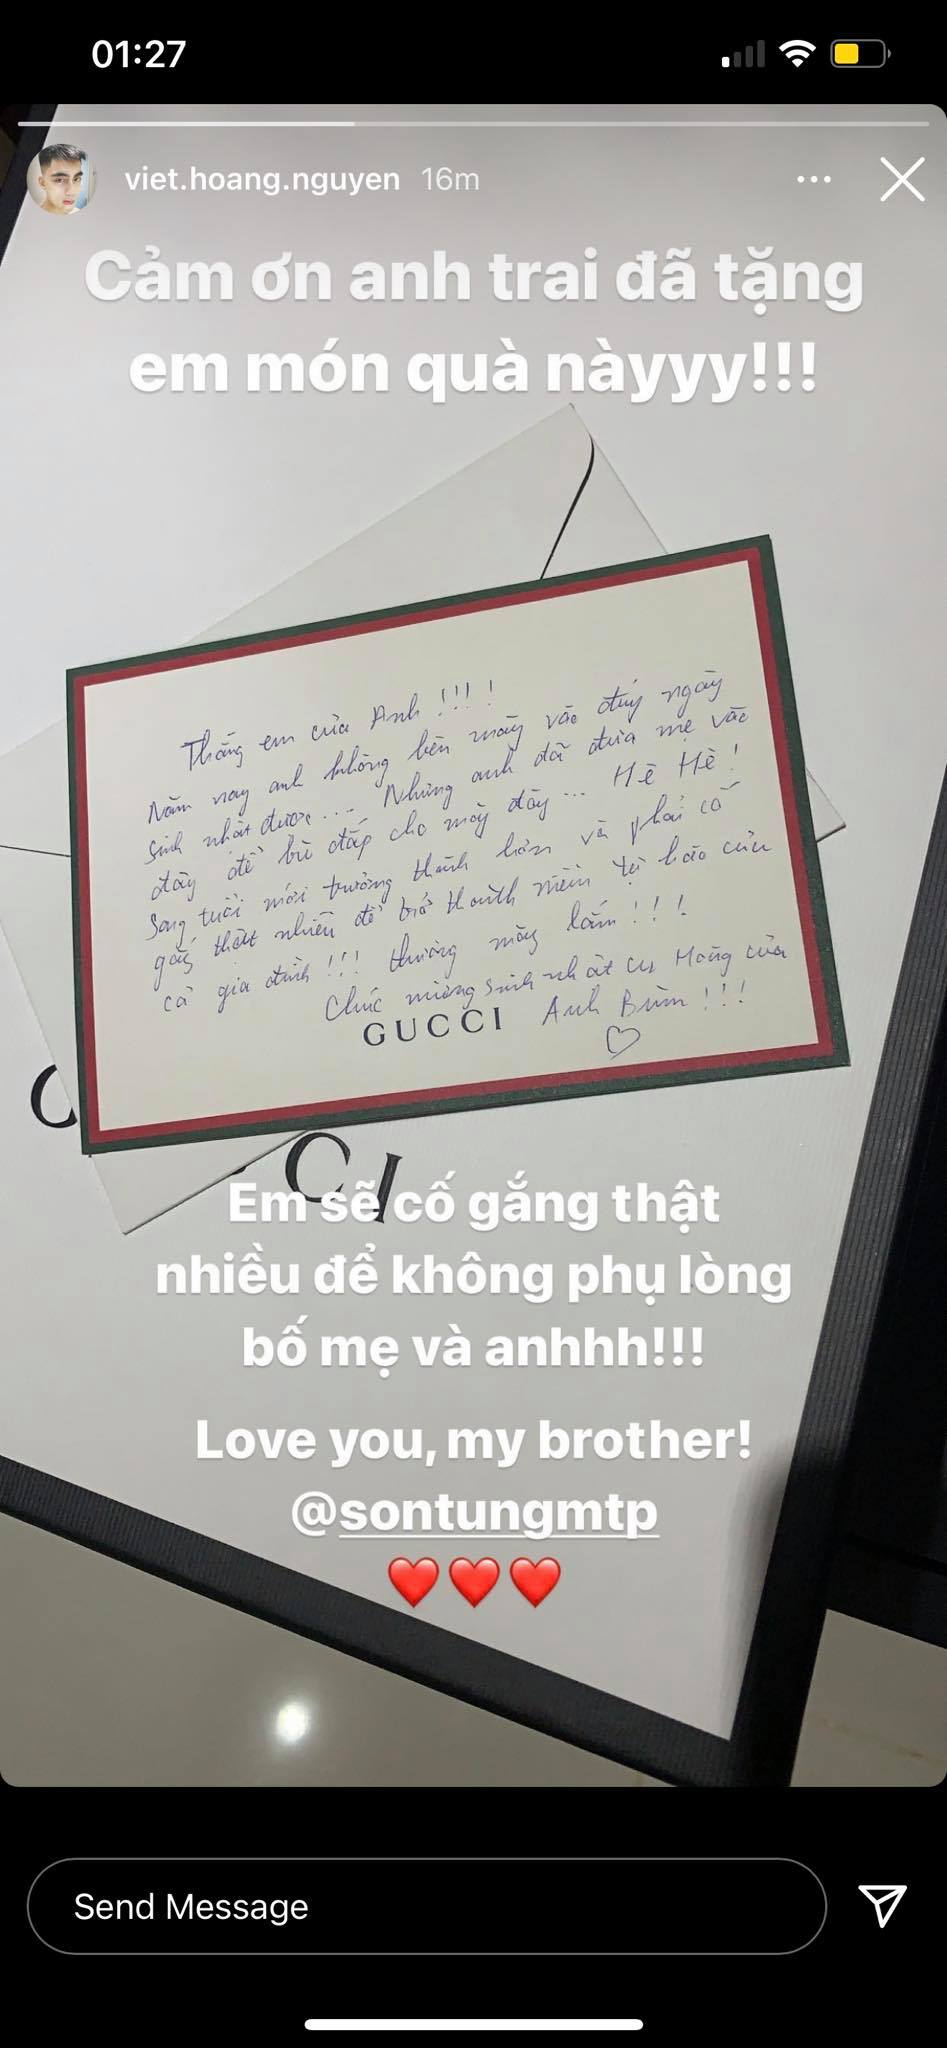 01:27
viet.hoang.nguyen 16m
Cảm ơn anh trai đã tặng
em món quà nàyyy!!!
Thằng em của Anh !!! !
Năm nay anh không bên mày vào đúng ngày
sinh nhật được... Nhưng anh đã đưa mẹ vào
đây để bù đắp cho mày đây... Hê Hê !
Sang tuổi mới trưởng thành hơn và phải cố
gắng thật nhiều để trở thành niềm tự hào của
cả gia đình !!! thương mày lắm !!!
Chúc mừng sinh nhật cu Hoàng của
Anh Bùm !!!
GUCCI
C CI
Em sẽ cố gắng thật
nhiều để không phụ lòng
bố mẹ và anhhh!!!
Love you, my brother!
@sontungmtp
Send Message